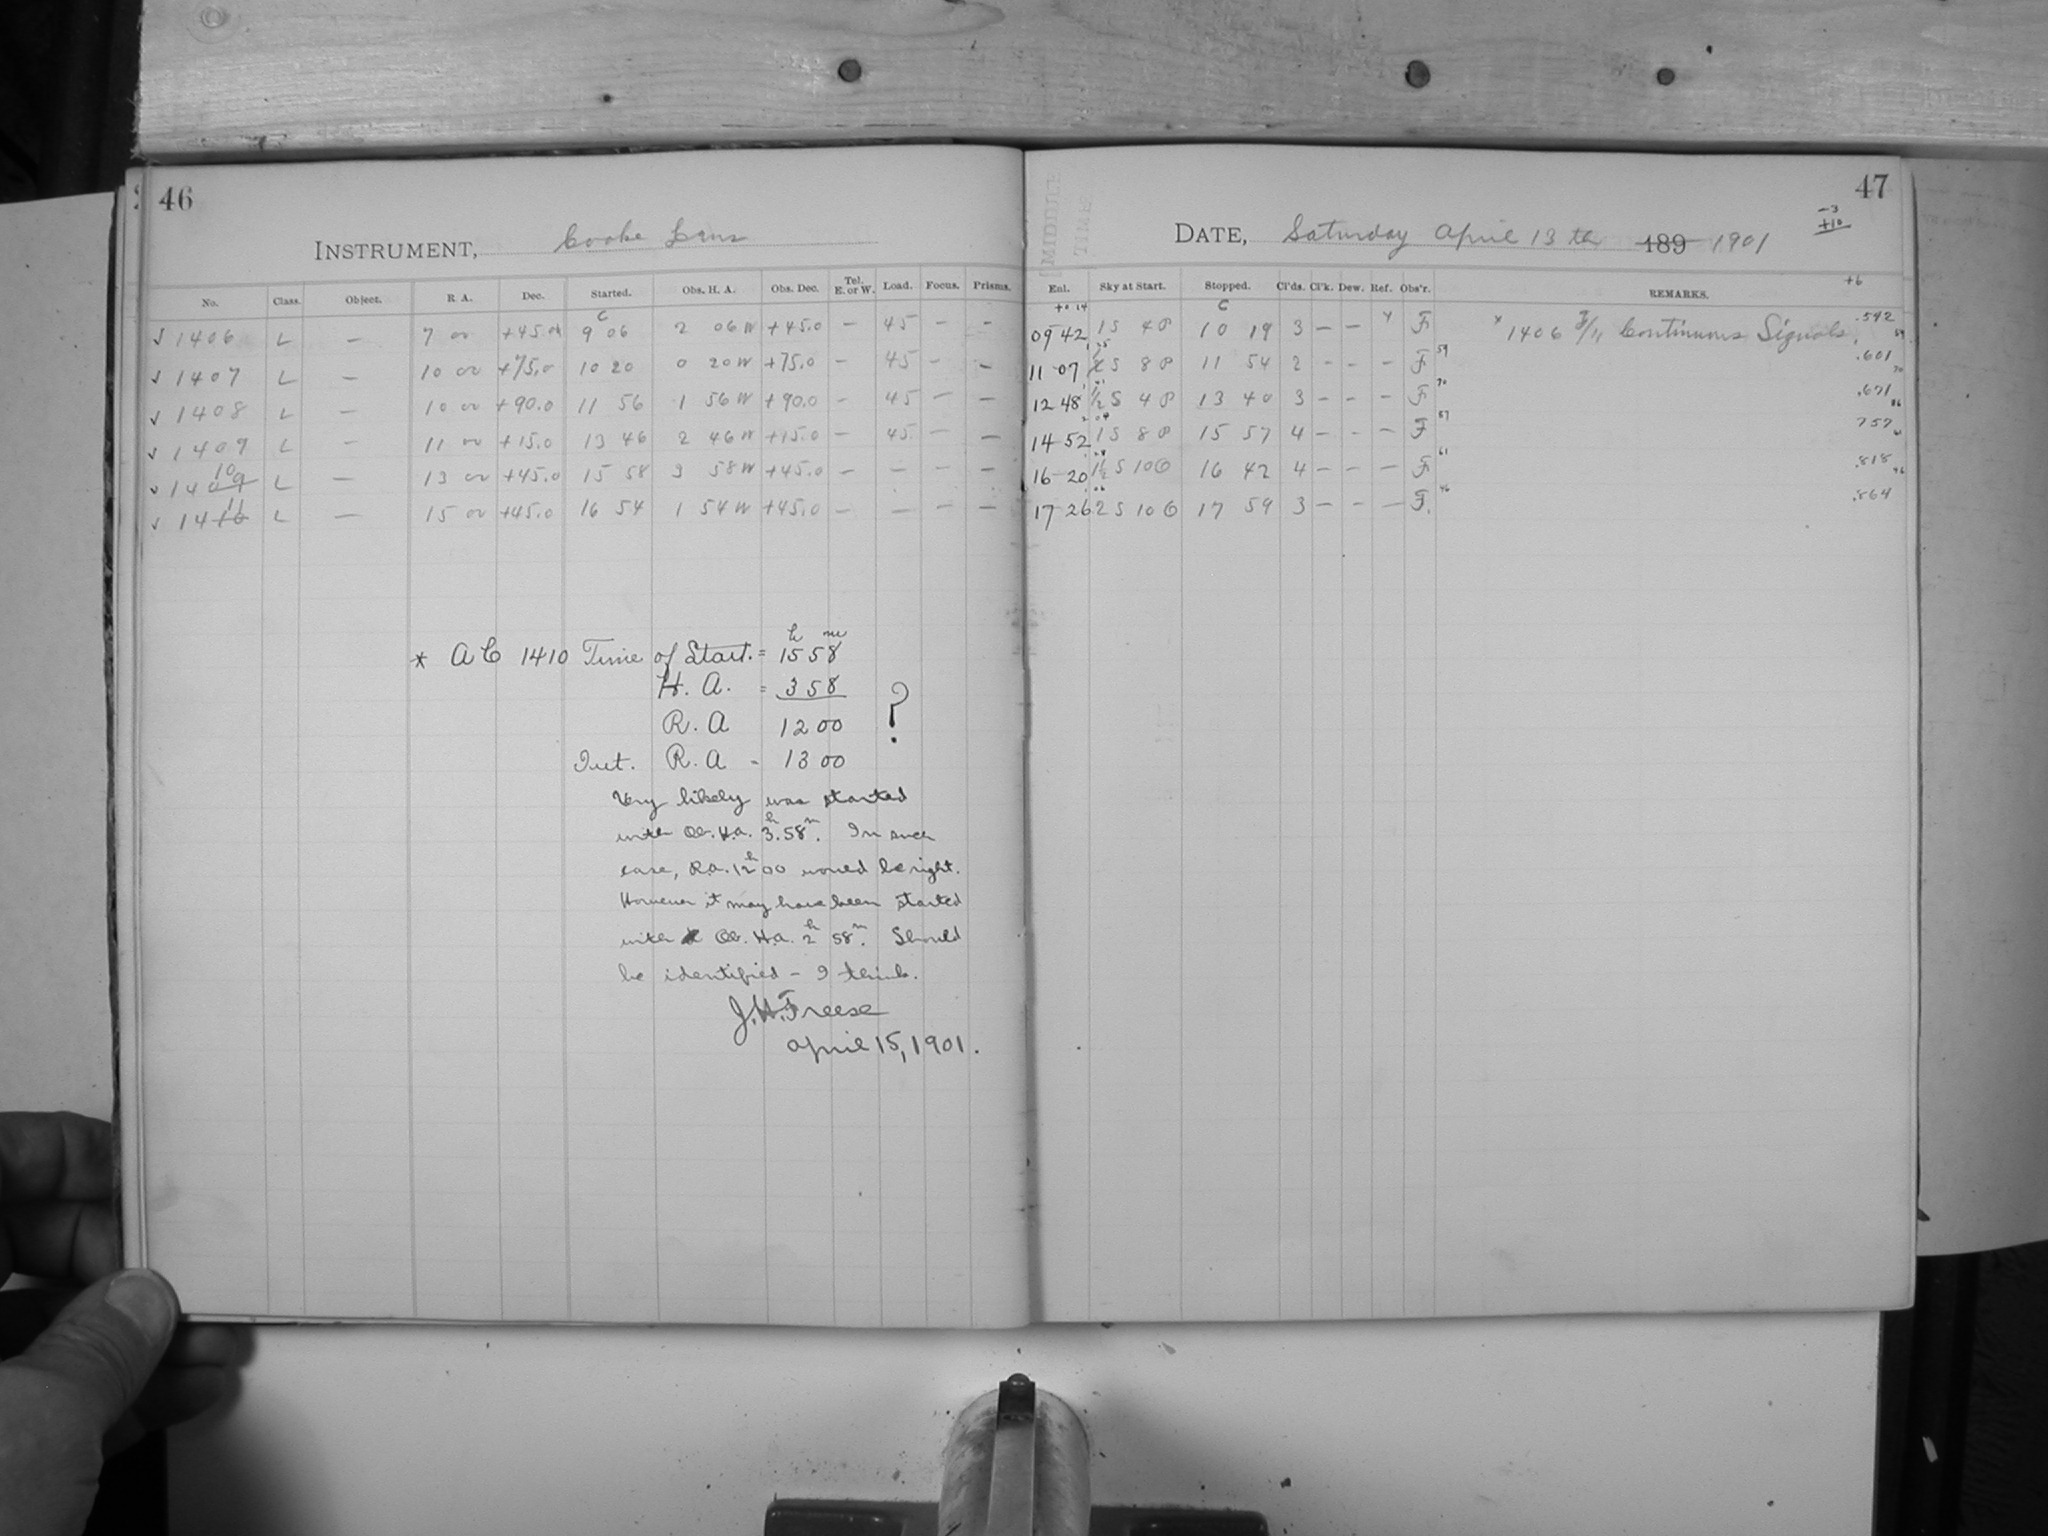 46
INSTRUMENT, Cooke Lens
No. Class. Object. R. A. Dec. Started. Obs. H. A. Obs. Dec. Tel. E. or W. Load. Focus. Prisms.
√ 1406 L — 7 00 +45.0 9 06 2 06 W +45.0 — 45 — —
√ 1407 L — 10 00 +75.0 10 20 0 20 W +75.0 — 45 — —
√ 1408 L — 10 00 +90.0 11 56 1 56 W +90.0 — 45 — —
√ 1409 L — 11 00 +15.0 13 46 2 46 W +15.0 — 45 — —
√ 1410 L — 13 00 +45.0 15 58 3 58 W +45.0 — — — —
√ 1411 L — 15 00 +45.0 16 54 1 54 W +45.0 — — — —
* AC 1410 Time of Start. = 15h 58m
H. A. = 3 58
R. A 12 00 ?
Int. R. A - 13 00
Very likely was started
with Ob. H.a. 3h.58m. In such
case, R.a. 12h 00 would be right.
However it may have been started
with Ob. H.a. 2h 58m. Should
be identified – I think.
J.H. Freese
April 15, 1901.
47
DATE, Saturday April 13 th 189 1901
-3
+10
+6
MIDDLE
TIME
Enl. Sky at Start. Stopped. Cl'ds. Cl'k. Dew. Ref. Obs'r. REMARKS.
+0.14 C
09 42 1 S 4 P 10 19 3 — — F 1406 Continuous Signals. .542
11 07 S 8 P 11 54 2 - - - F 59 .601
12 48 1/2 S 4 P 13 40 3 - - - F 70 .671
14 52 1 S 8 P 15 57 4 - - - F 87 .757
16 20 1 1/2 S 10 16 42 4 — — — F 61 .818
17 26 2 S 10 17 59 3 — — — F. 46 .864